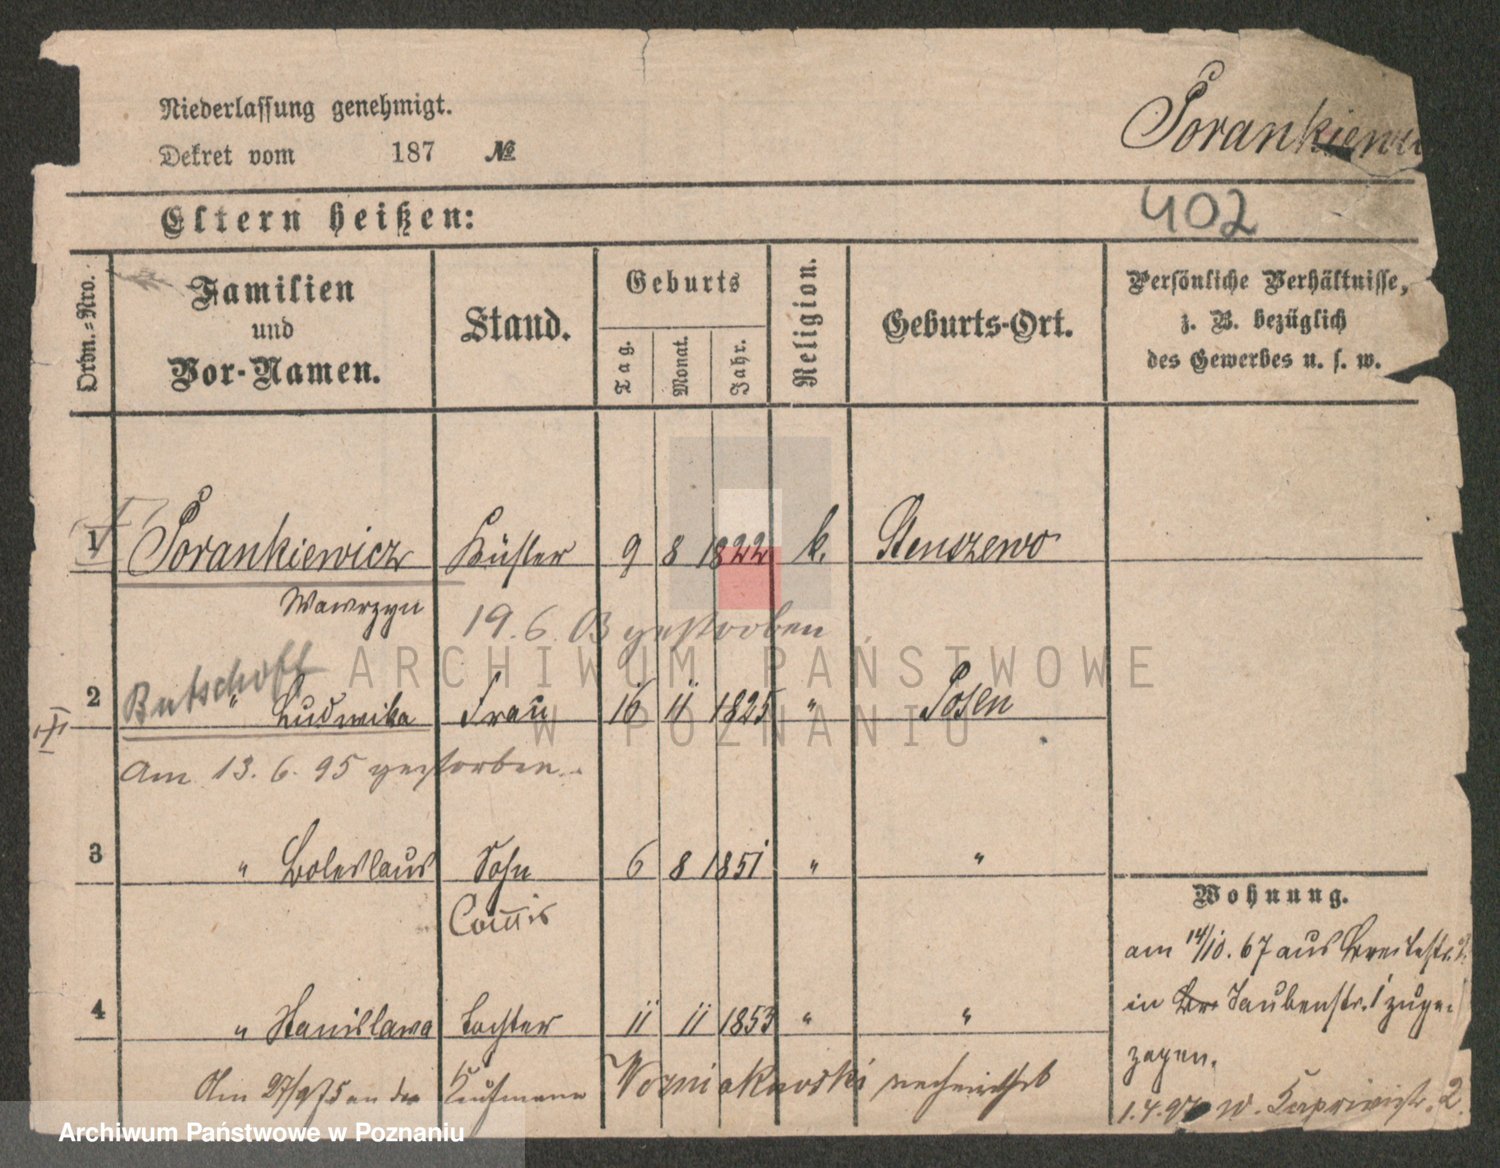 Niederlassung genehmigt.
Dekret vom 187 №
Porankiewi
Eltern heißen:
402
Ordn.=Nro.
Familien und Vor-Namen.
Stand.
Geburts
Tag. Monat. Jahr.
Religion.
Geburts-Ort.
Persönliche Verhältnisse,
z. B. bezüglich
des Gewerbes u. s. w.
1 Porankiewicz Küster 9 8 1822 k. Stenszewo
Wawrzyn
19. 6. 03 gestorben
Butschoff
2 " Ludwika Frau 16 11 1825 " Posen
Am 13. 6. 95 gestorben.
3 " Boleslaus Sohn 6 8 1851 " "
Commis
4 " Stanislawa Tochter 11 11 1853 " "
Am 27/9 75 an den Kaufmann Wozniakowski verheirathet
Wohnung.
am 14/10. 67 aus Breitestr.
in Taubenstr. 1 zuge-
zogen.
1.4.97 W. Kaprivistr. 2.
ARCHIWUM PAŃSTWOWE
W POZNANIU
Archiwum Państwowe w Poznaniu